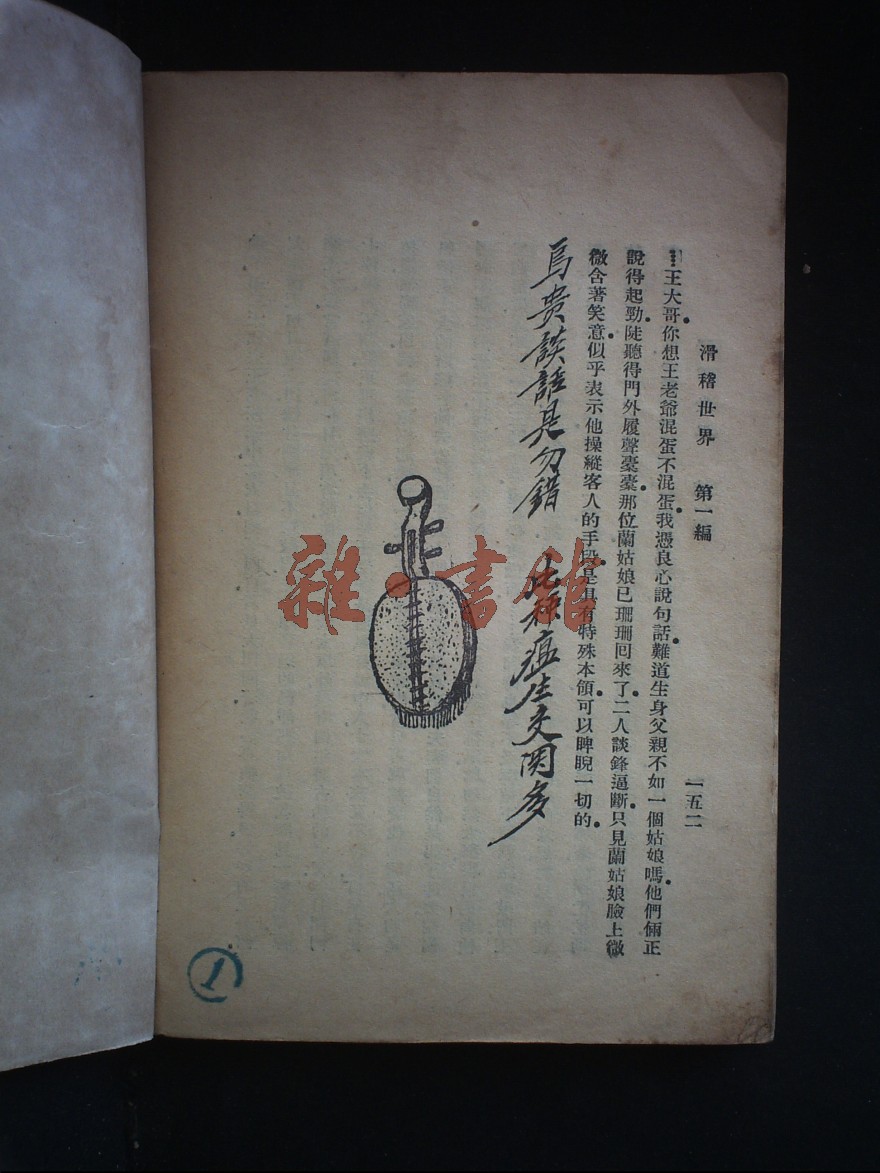 滑稽世界 第一編 一五二
……王大哥。你想王老爺混蛋不混蛋。我憑良心說句話。難道生身父親不如一個姑娘嗎。他們倆正
說得起勁。陡聽得門外履聲橐橐。那位蘭姑娘已珊珊回來了。二人談鋒逼斷。只見蘭姑娘臉上微
微含著笑意。似乎表示他操縱客人的手段。是具有特殊本領。可以睥睨一切的。
烏貴談話是勿錯 瘟生交関多
雜·書館
1